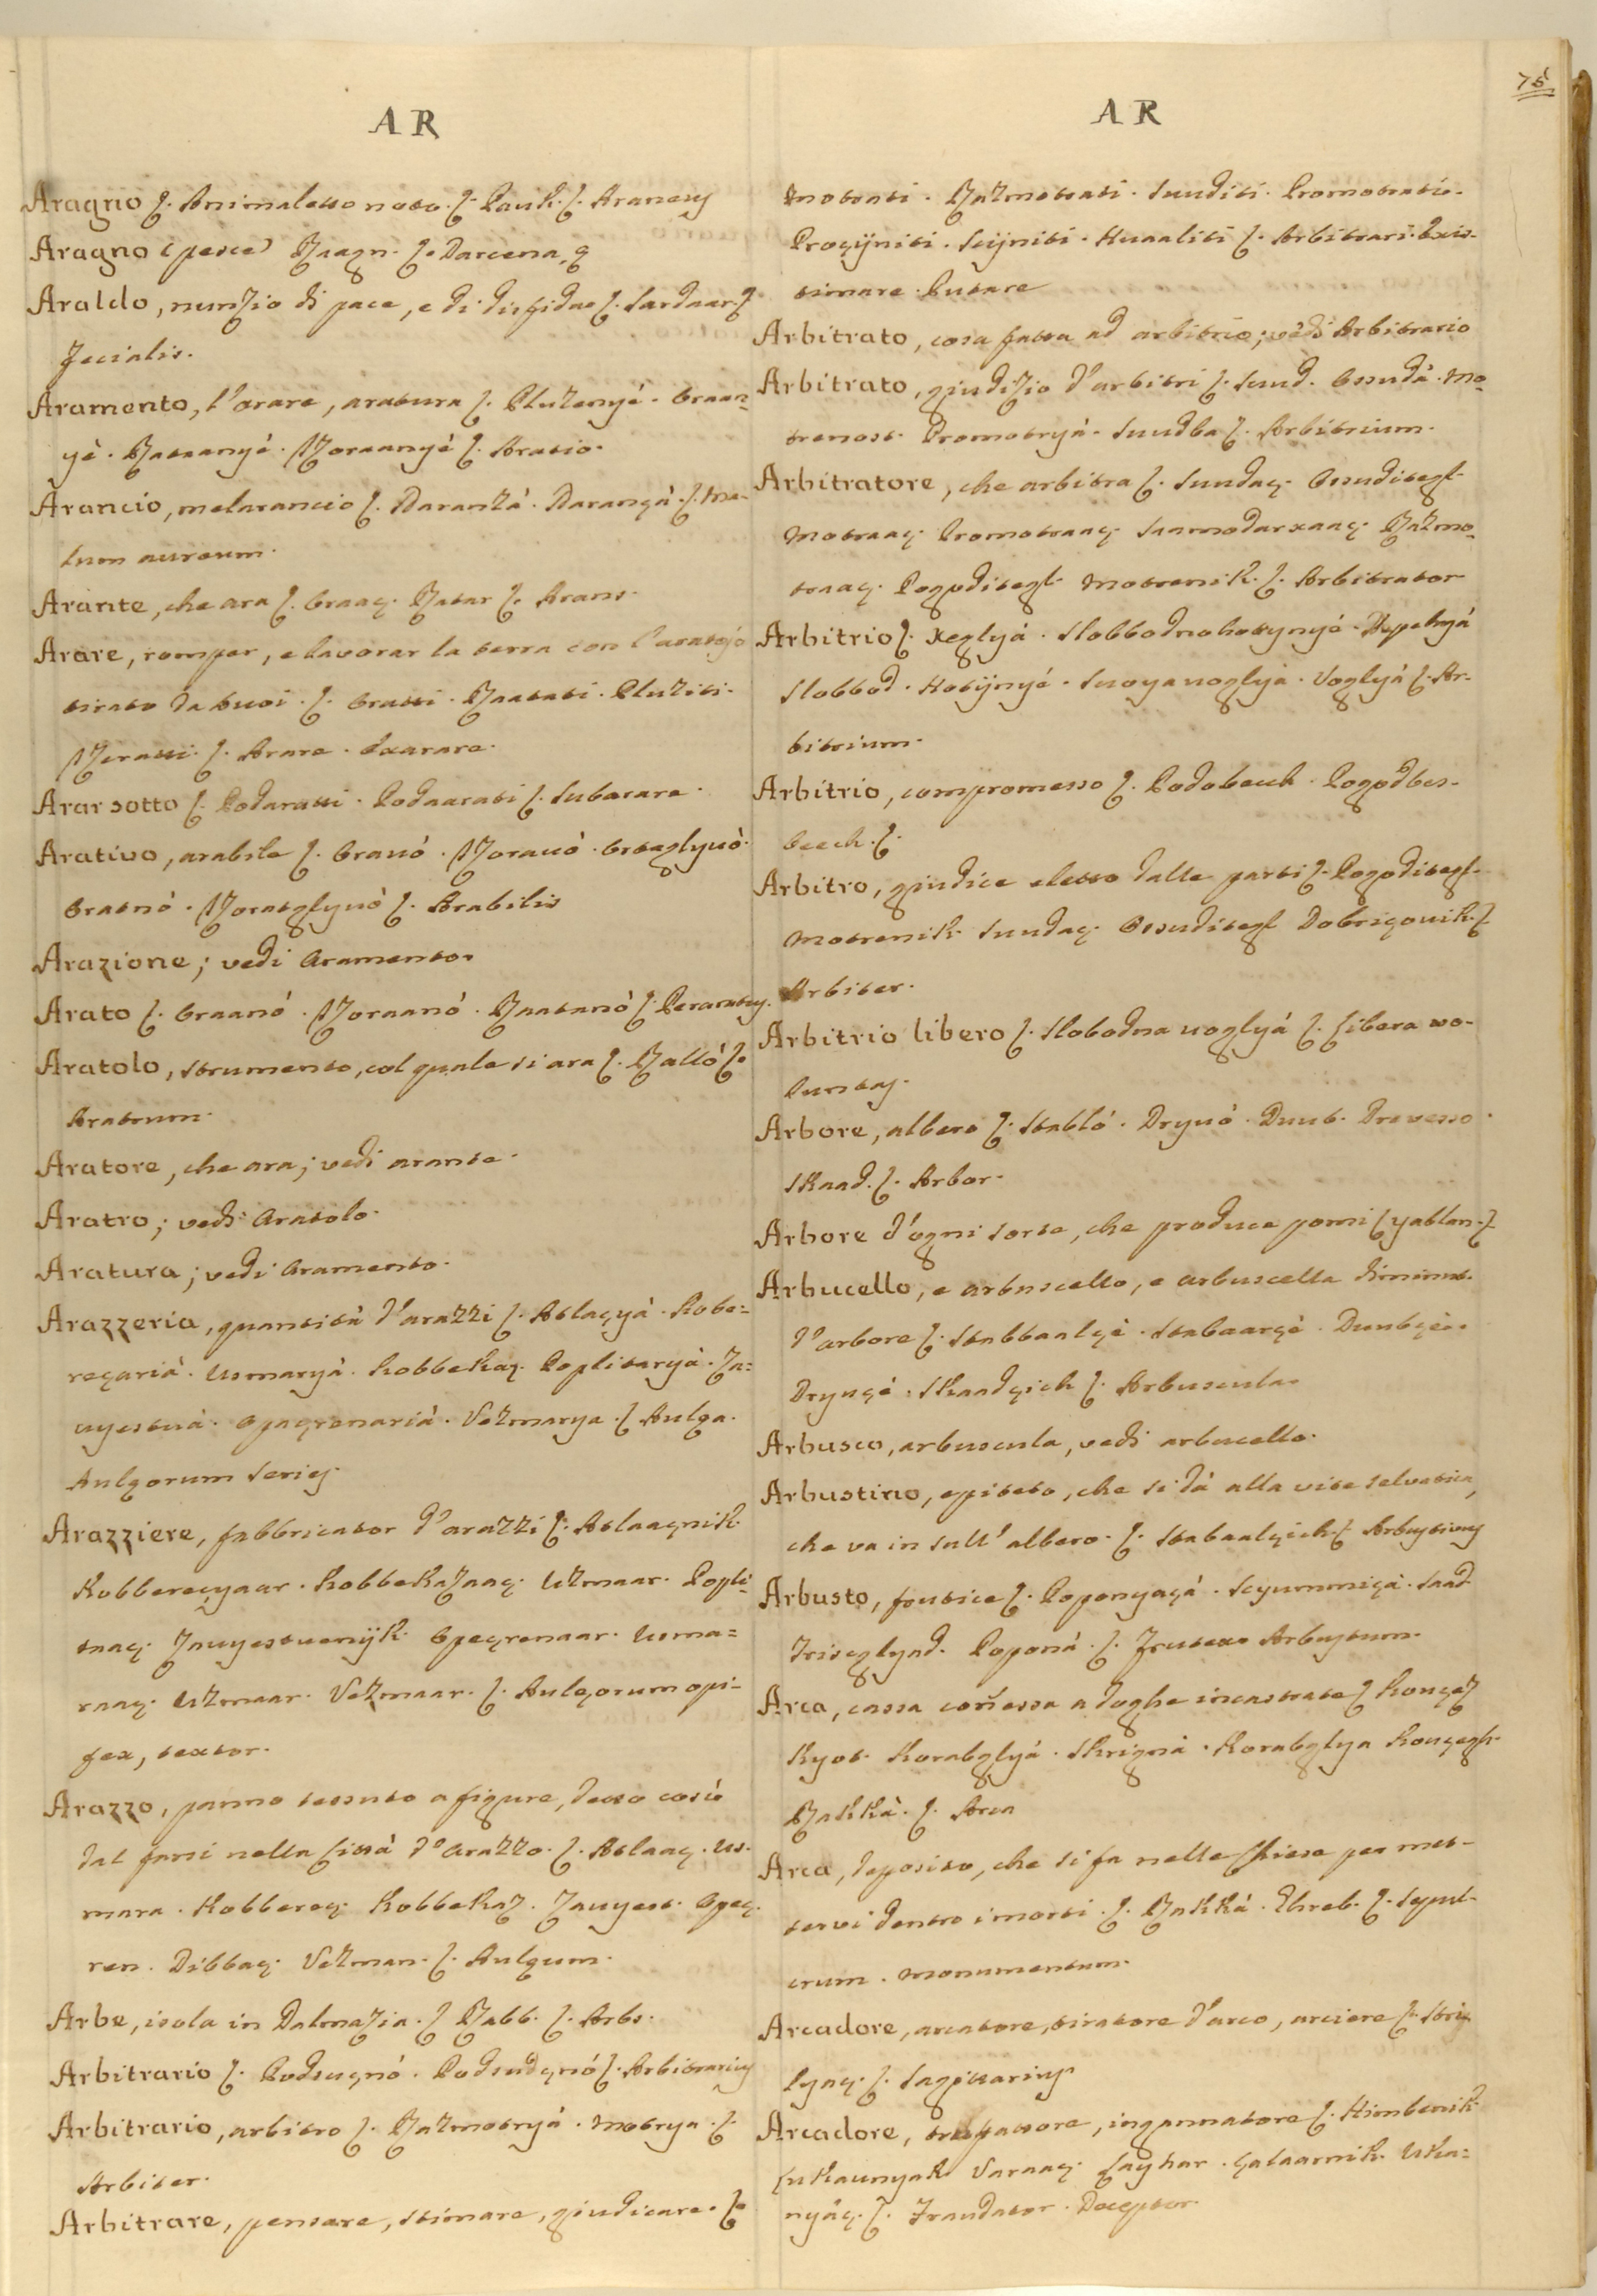 75
A R
Aragno ʃ. Animaletto noto. ʃ. Pauk. ʃ. Araneus
Aragno (pesce) Raagn. ʃ. Darcena, ę
Araldo, nunzio di pace, e di disfidae ʃ. Sardaar. ʃ
Fecialis.
Aramento, l'arare, aratura ʃ. Pluženyé. Oraan-
yé. Rataanyé. Zoraanyé ʃ. Aratio.
Arancio, melarancio ʃ. Naranžá. Narançá. ʃ. Ma-
lum aureum.
Arante, che ara ʃ. Oraaç. Ratar ʃ. Arans.
Arare, romper, e lavorar la terra con l'aratojo
tirato da buoi. ʃ. Oratti. Raatati. Plužiti.
Zoratti. ʃ. Arare. Exarare.
Arar sotto ʃ. Podaratti. Podaarati ʃ. Subarare.
Arativo, arabile ʃ. Oravó. Zoravó. Orteglyvò.
Oratnó. Zorateglyvò ʃ. Arabilis
Arazione; vedi Aramento.
Arato ʃ. Oraanó. Zoraanó. Raatanó ʃ. Peraratus.
Aratolo, strumento, col quale si ara ʃ. Ralló ʃ.
Aratrum.
Aratore, che ara; vedi arante.
Aratro; vedi Aratolo.
Aratura; vedi Aramento.
Arazzeria, quantità d'arazzi ʃ. Atlaçyá. Kobe=
reçariá. Usmaryá. Kobbekaç. Poplitaryá. Za=
vyestvá. Opaçrenariá. Vežmarya. ʃ Aulça.
Aulçorum series.
Arazziere, fabbricator d'arazzi ʃ. Atlaaçnik
Kobbereçyaar. Kobbekazaaç. Užmaar. Popli-
taaç. Zavyestvenijk. Opeçrenaar. Usma=
raaç. Užmaar. Vežmaar. ʃ. Aulçorum opi-
fex, textor.
Arazzo, panno tessuto a figure, detto così
dal farsi nella Città d'Arazzo. ʃ. Atlaaç. Us-
mara. Kobbereç. Kobbekaz. Zavyest. Opeç-
ren. Dibbaç. Vežman. ʃ. Aulçum.
Arbe, isola in Dalmazia. ʃ Rabb. ʃ. Arbs.
Arbitrario ʃ. Podsuçnó. Podsudçnó ʃ. Arbitrarius
Arbitrario, arbitro ʃ.Ražmotryá. Motrya. ʃ.
Arbiter.
Arbitrare, pensare, stimare, giudicare. ʃ.
A R
Motrati. Ražmotrati. Suuditi. Promotratie.
Proçijniti. Scijniti. Huaaliti ʃ. Arbitrari. Exis-
timare. Putare
Arbitrato, cosa fatta ad arbitrio; vedi Arbitrario
Arbitrato, giudizio d'arbitri ʃ. Suud. Ossudá. Mo-
trenost. Promotryá. Suudba ʃ. Arbitrium.
Arbitratore, che arbitra ʃ. Suudaç. Ossuditegl.
Motraaç. Promotraaç. Saamodarxaaç. Ražmo-
traaç. Pogoditegl. Motrenik. ʃ. Arbitrator
Arbitrio ʃ. Xeglyá. Slobbodnohotynyé.
Slobbod. Hotijnyé. Svoyavoglya. Voglyá ʃ. Ar-
bitrium.
Arbitrio, compromesso ʃ. Podobecch. Pogodbes-
becch. ʃ.
Arbitro, giudice eletto dalle parti ʃ. Pogoditegl.
Motrenik. Suudaç. Ossuditegl Dobriçovik. ʃ
Arbiter.
Arbitrio libero ʃ. Slobodna voglyá ʃ. Libera vo-
luntas.
Arbore, albero ʃ. Stabló. Dryvó. Duub. Drevesso.
Skaad. ʃ. Arbor.
Arbore d'ogni sorte, che produce pomi ʃ yablan. ʃ.
Arbucello, e arbuscello, e arbuscella diminut.
d'arbore ʃ. Stabbaalçé. Stabaarçé. Duubçée.
Dryvçé. Skaadçich ʃ. Arbuscula.
Arbusco, arbuscula, vedi arbucello.
Arbustino, epiteto, che si dà alla vite selvatica,
che va in sull' albero. ʃ. Stabaalçich. ʃ. Arbustivus
Arbusto, frutice ʃ. Poponyaçá. Scyummiçá. Saad
Triseglyad. Poponá. ʃ. Frutex. Arbustum.
Arca, cassa con̄essa a doghe incastrate ʃ Kouçez
Kyot. Korabglyá. Skrigná. Korabglya Kouçegh.
Rakká. ʃ. Arca
Arca, deposito, che si fa nelle Chiese per met-
tervi dentro i morti. ʃ. Rakká. Ghreb. ʃ. Sepul-
crum. Monumentum.
Arcadore, arcatore, tiratore d'arco, arciere ʃ. Strij-
lyaç. ʃ. Sagittarius.
Arcadore, truffatore, ingannatore ʃ. Himbenik
Lukaunyak Varaaç. Laghar. Galaarnik. Uka=
nyáç. ʃ. Fraudator. Deceptor.